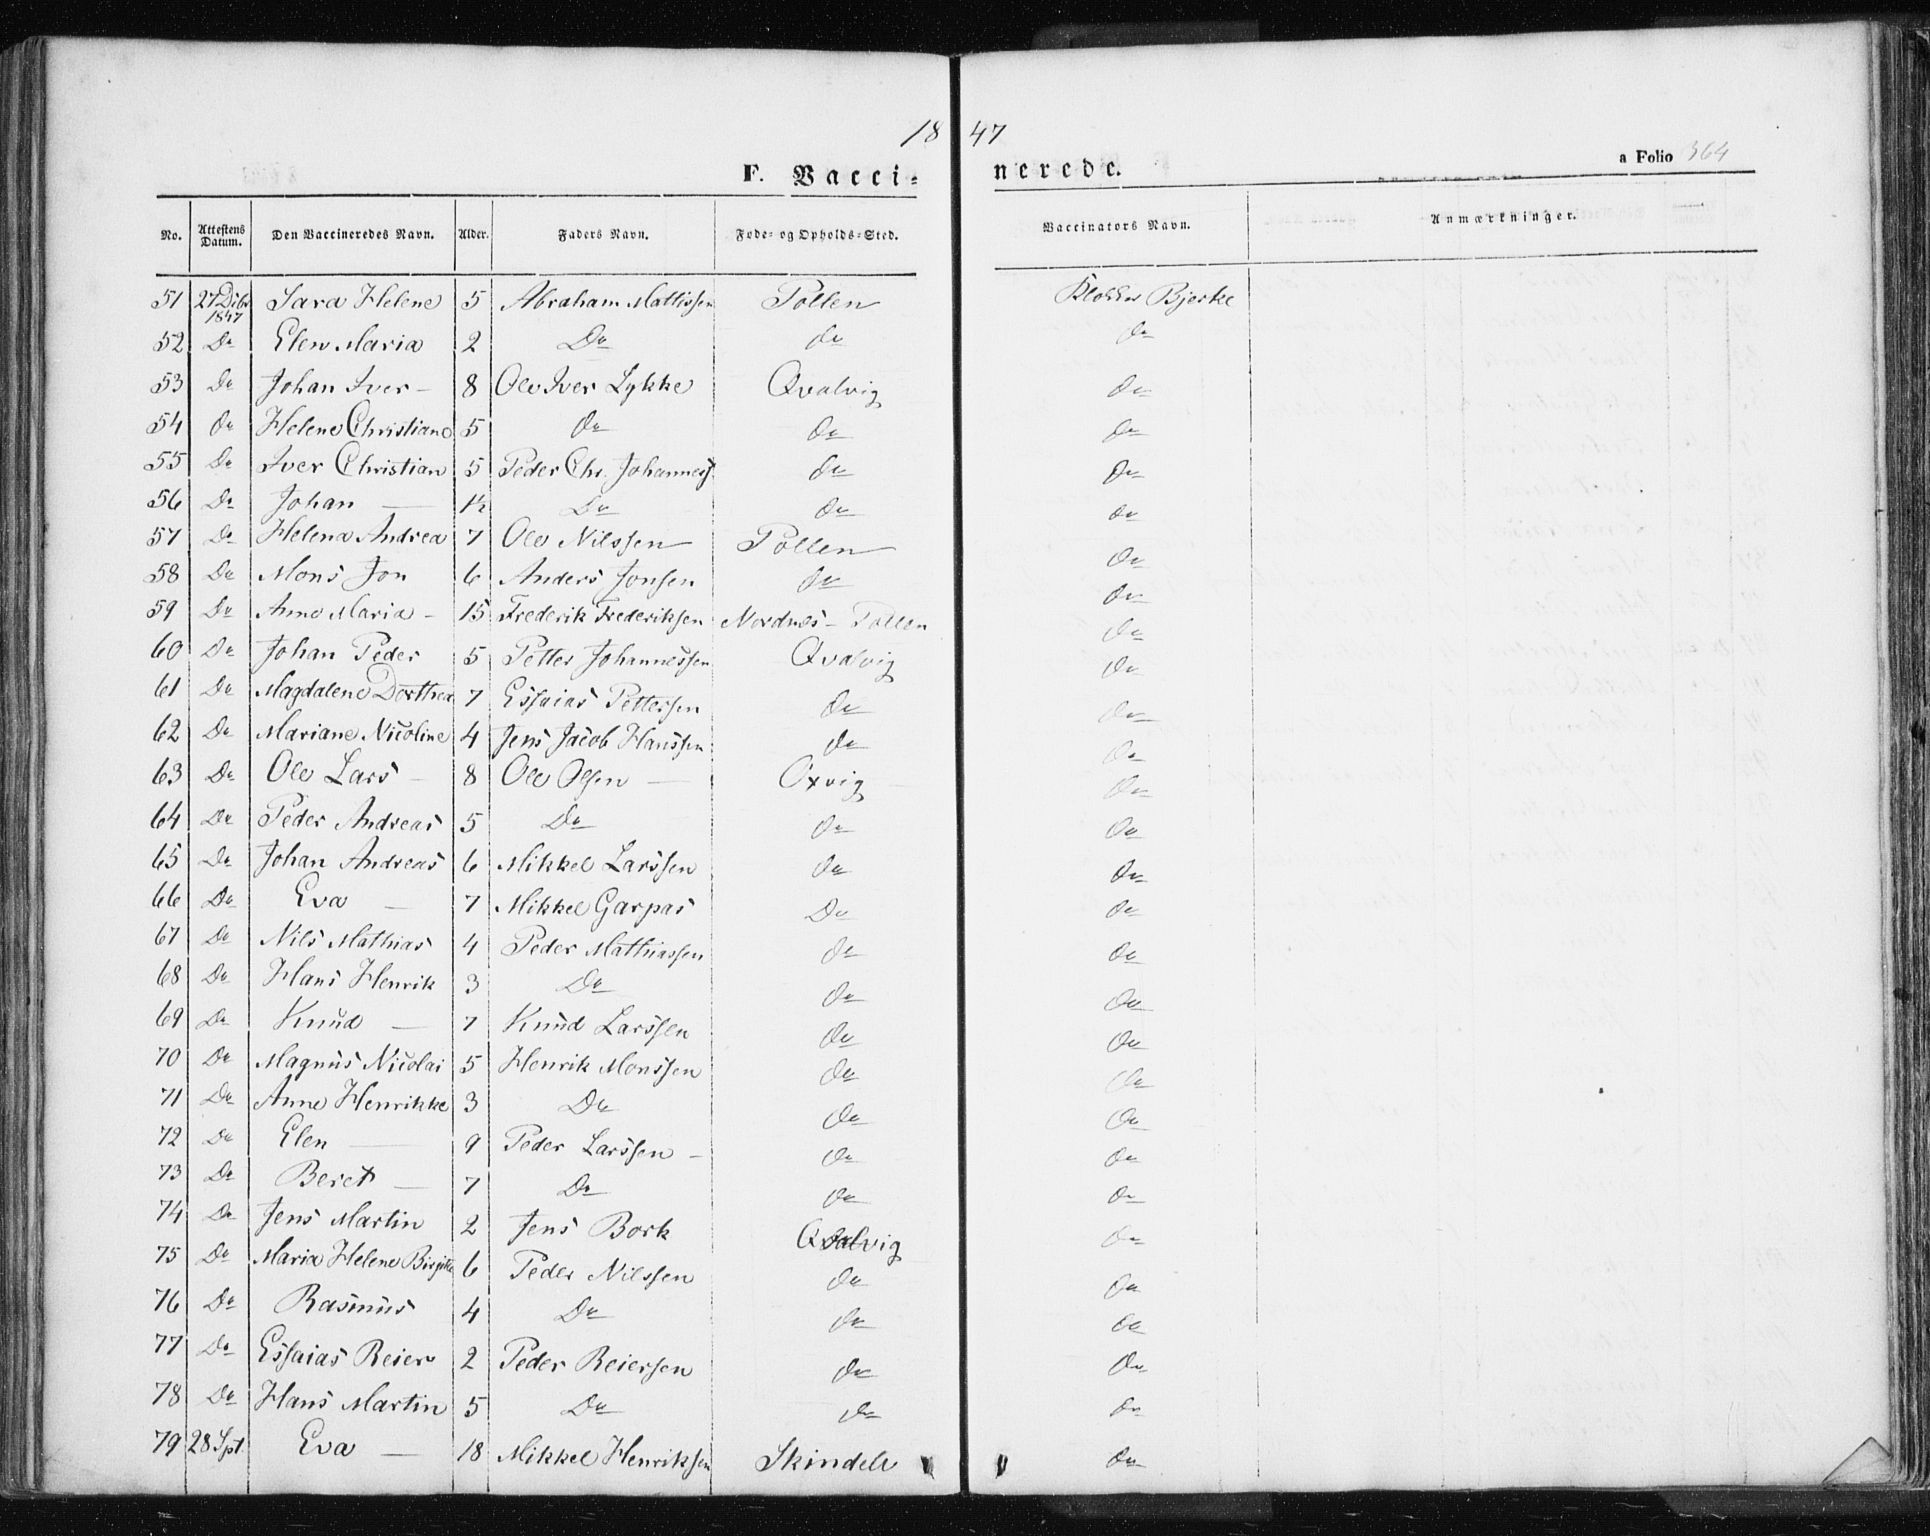 18 47
F. Vacci- nerede. a Folio 364
No. Attestens Datum. Den Vaccineredes Navn. Alder. Faders Navn. Føde- og Opholds-Sted. Vaccinators Navn. Anmærkninger.
51 27 Dcbr 1847 Sara Helene 5 Abraham Mattissen Pollen Klokker Bjerke
52 Do Elen Maria 2 Do do do
53 Do Johan Iver – 8 Ole Iver Lykke Qvalvig do
54 do Helene Christiane 5 do do do
55 Do Iver Christian 5 Peder Chr. Johanness. do do
56 Do Johan — 1½ Do do do
57 Do Helena Andrea 7 Ole Nilssen Pollen do
58 Do Mons Jon 6 Anders Jonsen do do
59 Do Anne Maria – 15 Frederik Frederiksen Nordnæs – Pollen do
60 Do Johan Peder 5 Petter Johannessen Qvalvig do
61 Do Magdalene Dorthea 7 Essaias Pettersen do do
62 Do Mariane Nicoline 4 Jens Jacob Hanssen do do
63 Do Ole Lars – 8 Ole Olsen — Oxvig do
64 Do Peder Andreas 5 Do do do
65 Do Johan Andreas 6 Mikkel Larssen do do
66 Do Eva – 7 Mikkel Garpas Do do
67 Do Nils Mathias 4 Peder Mathiassen do do
68 Do Hans Henrik 3 Do do do
69 Do Knud — 7 Knud Larssen do do
70 Do Magnus Nicolai 5 Henrik Monssen do do
71 Do Anne Henrikke 3 Do do do
72 Do Elen — 9 Peder Larssen – do do
73 Do Beret — 7 Do do do
74 Do Jens Martin 2 Jens Bork Qvalvig do
75 Do Maria Helene Birgitte 6 Peder Nilssen do do
76 Do Rasmus 4 Do do do
77 Do Essaias Reier 2 Peder Reiersen do do
78 Do Hans Martin 5 Do do do
79 28 Spt. Eva — 18 Mikkel Henriksen Skindelv do